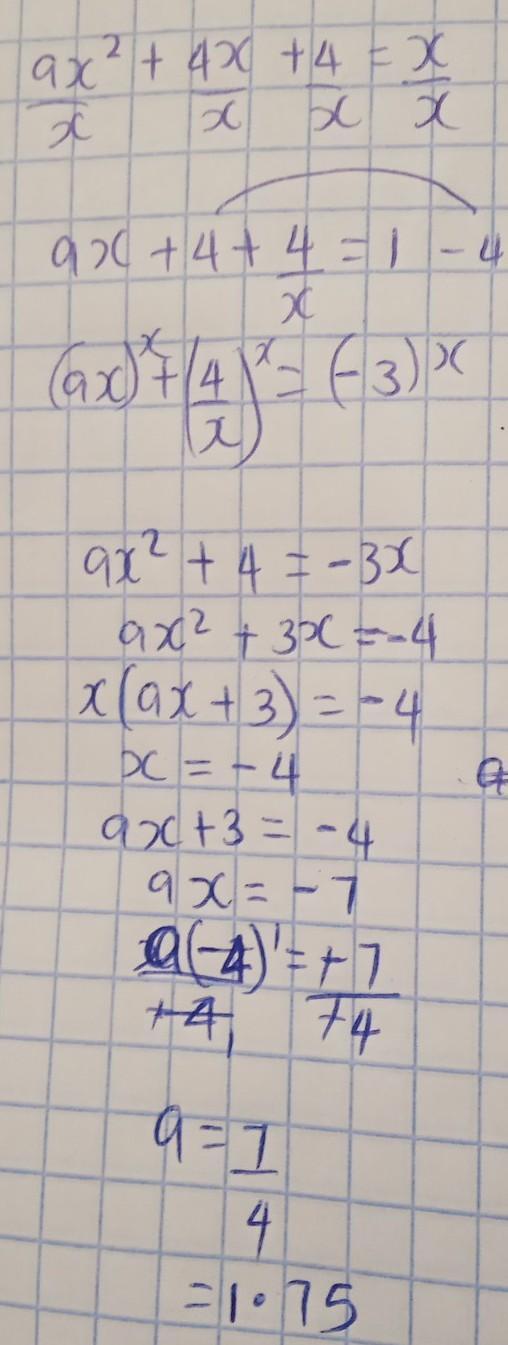 ax² + 4x + 4 = x
x x x x
ax + 4 + 4/x = 1 - 4
(ax)x + (4/x)x = (-3)x
ax² + 4 = -3x
ax² + 3x = -4
x(ax + 3) = -4
x = -4 a
ax + 3 = -4
ax = -7
a(-4)¹ = +7
+4₁ +4
a = 7
4
= 1.75